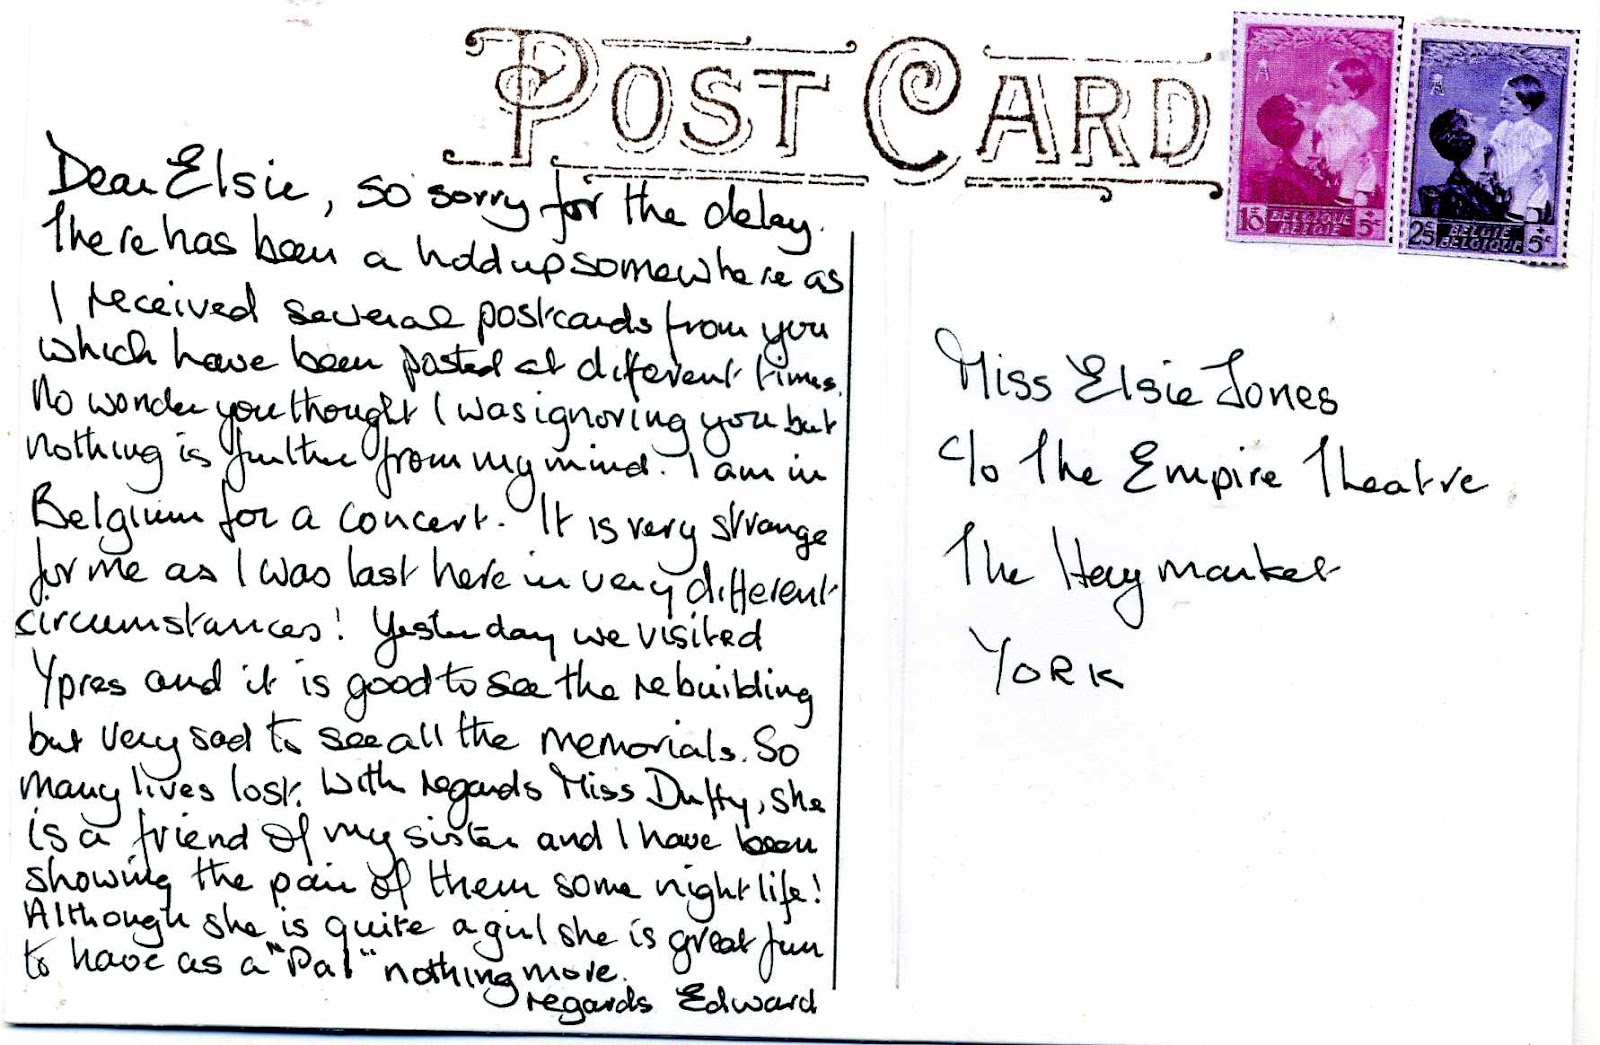 POST CARD
10c BELGIQUE BELGIË 5c
25c BELGIE BELGIQUE 5c
Dear Elsie, so sorry for the delay.
There has been a hold up somewhere as
I received several postcards from you
which have been posted at different times.
No wonder you thought I was ignoring you but
nothing is further from my mind. I am in
Belgium for a concert. It is very strange
for me as I was last here in very different
circumstances! Yesterday we visited
Ypres and it is good to see the rebuilding
but very sad to see all the memorials. So
many lives lost. With regards Miss Duffy, she
is a friend of my sister and I have been
showing the pair of them some night life!
Although she is quite a girl she is great fun
to have as a "Pal" nothing more.
regards Edward
Miss Elsie Jones
c/o The Empire Theatre
The Haymarket
YORK